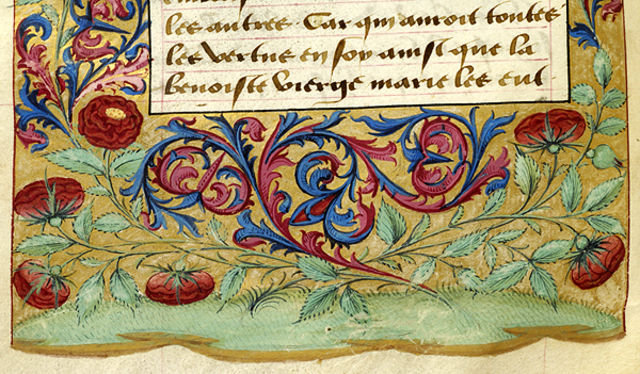 les autres. Car qui auroit toutes
les vertus en soy ainsi que la
benoiste vierge marie les eut